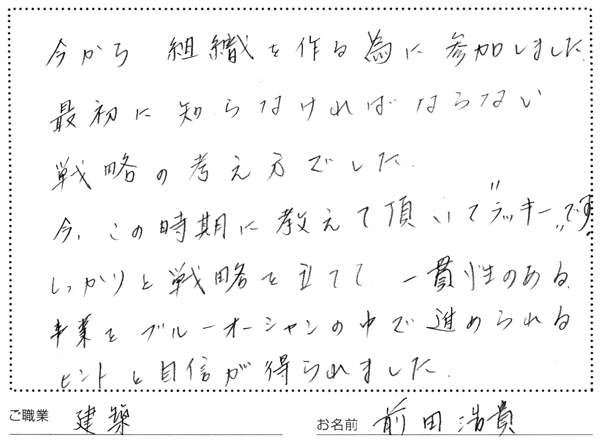 今から 組織を作る為に参加しました.
最初に知らなければならない
戦略の考え方でした.
今、この時期に教えて頂いて"ラッキー"です
しっかりと戦略を立てて 一貫性のある
事業をブルーオーシャンの中で進められる
ヒントと自信が得られました.
ご職業 建築 お名前 前田浩貴